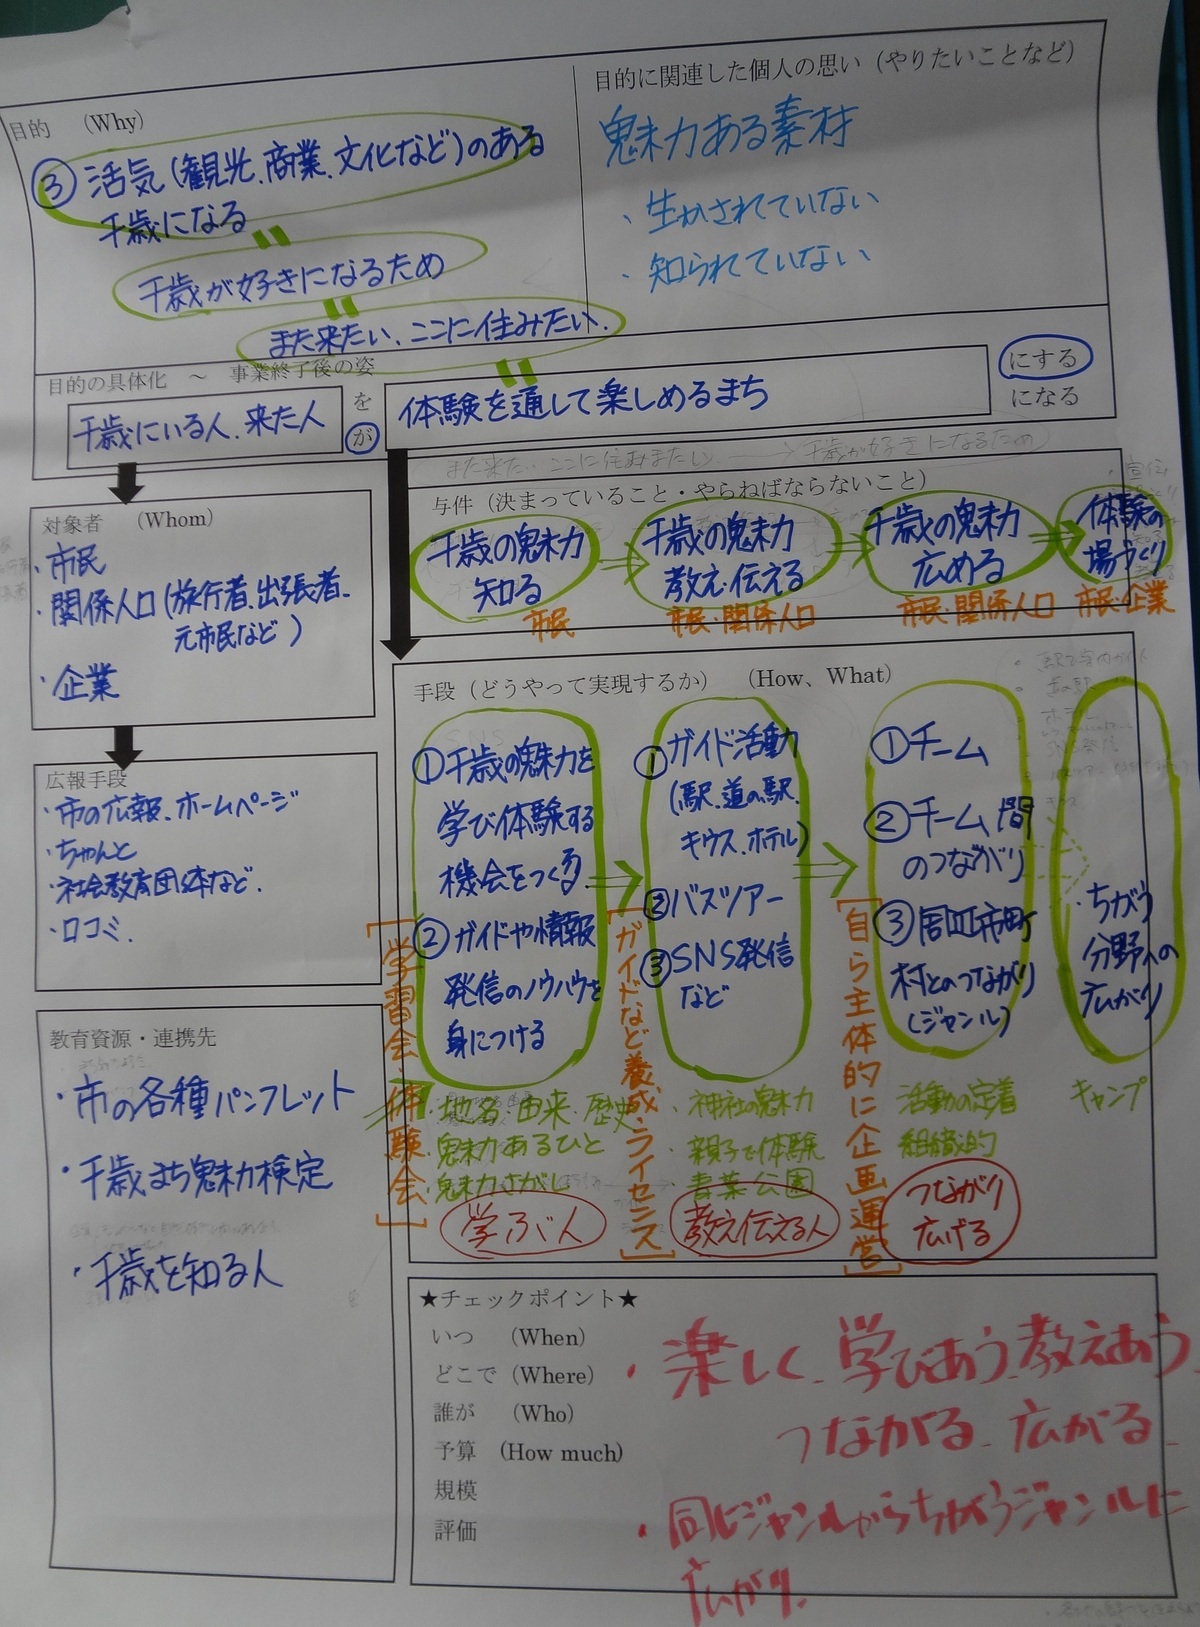 目的　（Why）
③ 活気（観光、商業、文化など）のある
千歳になる
〃
千歳が好きになるため
〃
また来たい、ここに住みたい、
〃
目的に関連した個人の思い（やりたいことなど）
魅力ある素材
、生かされていない
・知られていない
目的の具体化　～　事業終了後の姿
千歳にいる人、来た人
を
が
体験を通して楽しめるまち
にする
になる
また来た、ここに住みまたしい → 千歳が好きになるため
対象者　（Whom）
・市民
・関係人口（旅行者、出張者、
元市民など）
・企業
与件（決まっていること・やらねばならないこと）
千歳の魅力
知る
市民
千歳の魅力
教え・伝える
市民・関係人口
千歳の魅力
広める
市民・関係人口
体験の
場づくり
市民・企業
広報手段
・市の広報、ホームページ
・ちゃんと
・社会教育団体など、
・口コミ、
教育資源・連携先
・市の各種パンフレット
・千歳まち魅力検定
・千歳を知る人
手段（どうやって実現するか）　（How、What）
①千歳の魅力を
学び体験する
機会をつくる
②ガイドや情報
発信のノウハウを
身につける
［学習会・体験会］
・地名・由来・歴史
・魅力あるひと
・魅力さがし
学ぶ人
①ガイド活動
（駅、道の駅、
キウス、ホテル）
②バスツアー
③SNS発信
など
［ガイドなど養成・ライセンス］
・神社の魅力
・親子で体験
・青葉公園
教え伝える人
①チーム
②チーム間
のつながり
③周辺市町
村とのつながり
（ジャンル）
［自ら主体的に企画運営］
活動の定着
組織的
つながり
広げる
・ちがう
分野への
広がり
キャンプ
★チェックポイント★
いつ　（When）
どこで（Where）
誰が　（Who）
予算　（How much）
規模
評価
・楽しく、学びあう、教えあう、
つながる、広がる、
・同じジャンルからちがうジャンルに
広がり、